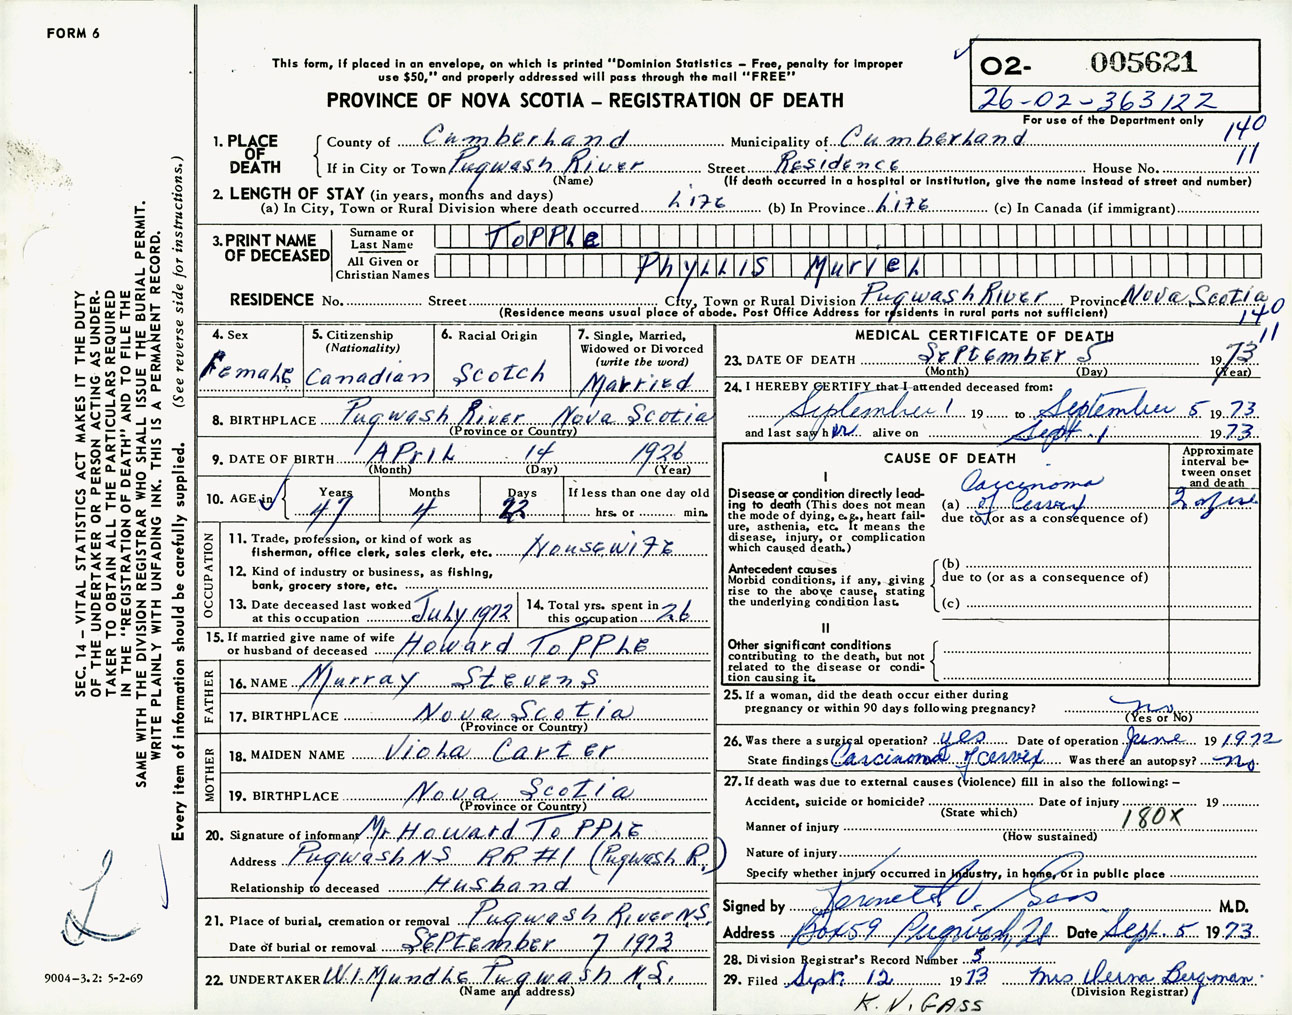 FORM 6
This form, if placed in an envelope, on which is printed "Dominion Statistics – Free, penalty for improper
use $50," and properly addressed will pass through the mail "FREE"
PROVINCE OF NOVA SCOTIA – REGISTRATION OF DEATH
O2- 005621
26-02-363122
For use of the Department only
140
11
1. PLACE OF DEATH
County of Cumberland Municipality of Cumberland
If in City or Town Pugwash River Street Residence House No.
(Name) (If death occurred in a hospital or institution, give the name instead of street and number)
2. LENGTH OF STAY (in years, months and days)
(a) In City, Town or Rural Division where death occurred Life (b) In Province Life (c) In Canada (if immigrant)
3. PRINT NAME OF DECEASED
Surname or Last Name TOPPLe
All Given or Christian Names PhyLLIS MurieL
RESIDENCE No. Street City, Town or Rural Division Pugwash River Province Nova Scotia
(Residence means usual place of abode. Post Office Address for residents in rural parts not sufficient)
140
11
4. Sex
Female
5. Citizenship
(Nationality)
Canadian
6. Racial Origin
Scotch
7. Single, Married,
Widowed or Divorced
(write the word)
Married
8. BIRTHPLACE Pugwash River Nova Scotia
(Province or Country)
9. DATE OF BIRTH APril 14 1926
(Month) (Day) (Year)
10. AGE in
Years 47
Months 4
Days 22
If less than one day old
hrs. or min.
OCCUPATION
11. Trade, profession, or kind of work as
fisherman, office clerk, sales clerk, etc. Housewife
12. Kind of industry or business, as fishing,
bank, grocery store, etc.
13. Date deceased last worked
at this occupation July 1972
14. Total yrs. spent in
this occupation 26
15. If married give name of wife
or husband of deceased Howard ToPPLE
FATHER
16. NAME Murray Stevens
17. BIRTHPLACE Nova Scotia
(Province or Country)
MOTHER
18. MAIDEN NAME Viola Carter
19. BIRTHPLACE Nova Scotia
(Province or Country)
20. Signature of informant Mr Howard ToPPLE
Address Pugwash NS RR #1 (Pugwash R.)
Relationship to deceased Husband
21. Place of burial, cremation or removal Pugwash River N.S.
Date of burial or removal September 7 1973
22. UNDERTAKER W.I. Mundle Pugwash N.S.
(Name and address)
MEDICAL CERTIFICATE OF DEATH
23. DATE OF DEATH September 5 1973
(Month) (Day) (Year)
24. I HEREBY CERTIFY that I attended deceased from:
September 1 19 to September 5 1973
and last saw her alive on Sept. 1 1973
CAUSE OF DEATH
Approximate
interval be-
tween onset
and death
I
Disease or condition directly lead-
ing to death (This does not mean
the mode of dying, e.g., heart fail-
ure, asthenia, etc. It means the
disease, injury, or complication
which caused death.)
Carcinoma
(a) of Cervix
due to (or as a consequence of)
Antecedent causes
Morbid conditions, if any, giving
rise to the above cause, stating
the underlying condition last.
(b)
due to (or as a consequence of)
(c)
II
Other significant conditions
contributing to the death, but not
related to the disease or condi-
tion causing it.
25. If a woman, did the death occur either during
pregnancy or within 90 days following pregnancy? no
(Yes or No)
26. Was there a surgical operation? yes Date of operation June 19 1972
State findings Carcinoma of cervix Was there an autopsy? no
27. If death was due to external causes (violence) fill in also the following: –
Accident, suicide or homicide? Date of injury 19
(State which)
Manner of injury 180X
(How sustained)
Nature of injury
Specify whether injury occurred in industry, in home, or in public place
Signed by M.D.
Address Box 59 Pugwash, NS Date Sept. 5 1973
28. Division Registrar's Record Number 5
29. Filed Sept. 12 1973 Mrs Verna Bergman
(Division Registrar)
K. V. GASS
SEC. 14 – VITAL STATISTICS ACT MAKES IT THE DUTY
OF THE UNDERTAKER OR PERSON ACTING AS UNDER-
TAKER TO OBTAIN ALL THE PARTICULARS REQUIRED
IN THE "REGISTRATION OF DEATH" AND TO FILE THE
SAME WITH THE DIVISION REGISTRAR WHO SHALL ISSUE THE BURIAL PERMIT.
WRITE PLAINLY WITH UNFADING INK. THIS IS A PERMANENT RECORD.
Every item of information should be carefully supplied. (See reverse side for instructions.)
9004–3.2: 5-2-69